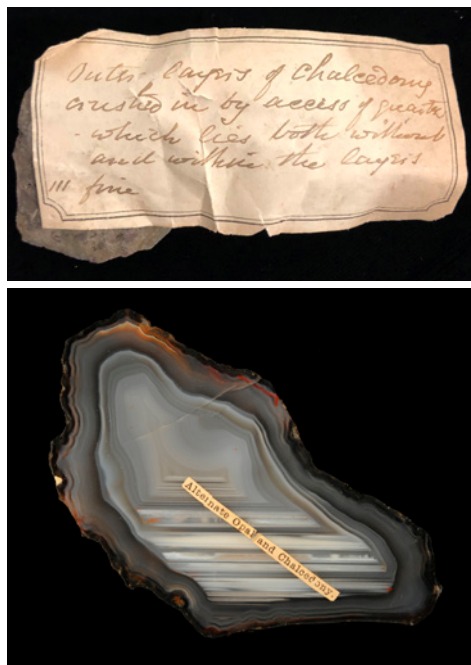 Outer layers of Chalcedony
crushed in by access of quartz
- which lies both without
and within the layers
111 fine
Alternate Opal and Chalcedony.